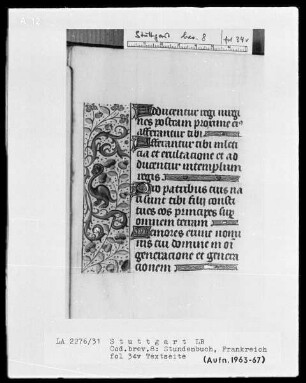 A 12
Stuttgart brev. 8 fol 34v
Adducentur regi virgi
nes postram proxime ei⁹
afferantur tibi
Afferantur tibi in leti
cia et exultacione et ad
ducentur in templum
regis
Pro patribus tuis na
ti sunt tibi filij consti
tues eos principes sup
omnem terram
Memores erunt nomi
nis tui domine in oi
generacione et genera
cionem
LA 2276/31 Stuttgart LB
Cod.brev.8: Stundenbuch, Frankreich
fol 34v Textseite
(Aufn.1963-67)